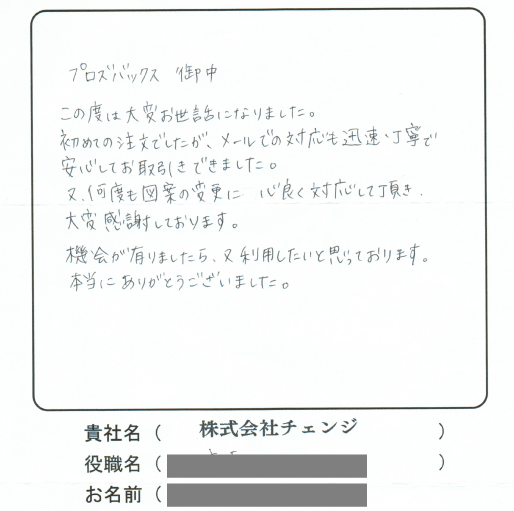 プロズバックス 御中
この度は大変お世話になりました。
初めての注文でしたが、メールでの対応も迅速・丁寧で
安心してお取引きできました。
又、何度も図案の変更に 心良く対応して頂き、
大変感謝しております。
機会が有りましたら、又利用したいと思っております。
本当にありがとうございました。
貴社名 ( 株式会社チェンジ )
役職名 ( )
お名前 (